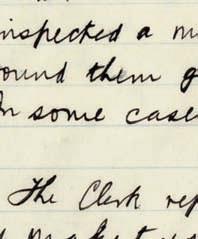 inspected a m
ound them g
In some case
The Clerk rep
d market